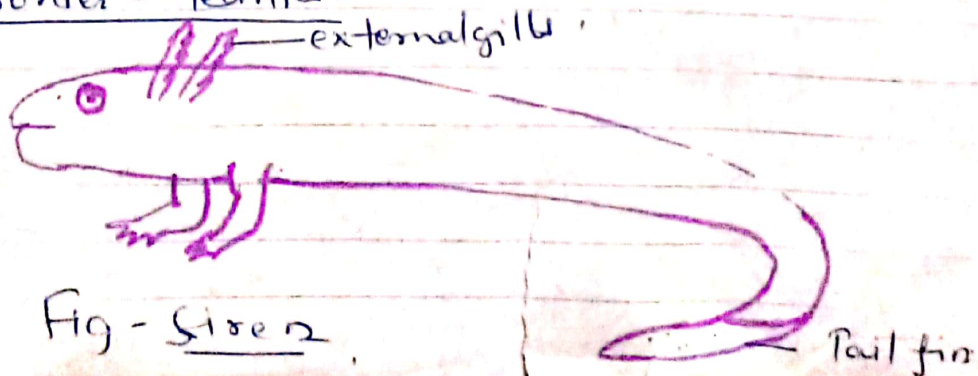 external gills.
Fig - Siren.
Tail fin